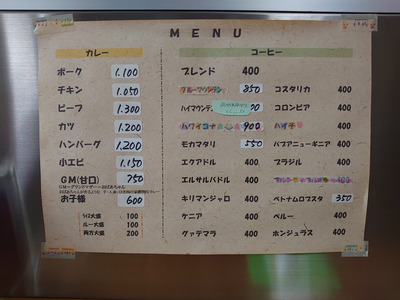 MENU
カレー
ポーク 1.100
チキン 1.050
ビーフ 1.300
カツ 1.200
ハンバーグ 1.200
小エビ 1.150
GM(甘口) 750
お子様 600
ライス大盛 100
ルー大盛 100
両方大盛 200
コーヒー
ブレンド 400
ブルーマウンテン 850
コスタリカ 400
ハイマウンテン
コロンビア 400
ハワイコナ 900
ハイチ 400
モカマタリ 550
パプアニューギニア 400
エクアドル 400
ブラジル 400
エルサルバドル 400
400
キリマンジャロ 400
ベトナムロブスタ 350
ケニア 400
ペルー 400
グァテマラ 400
ホンジュラス 400